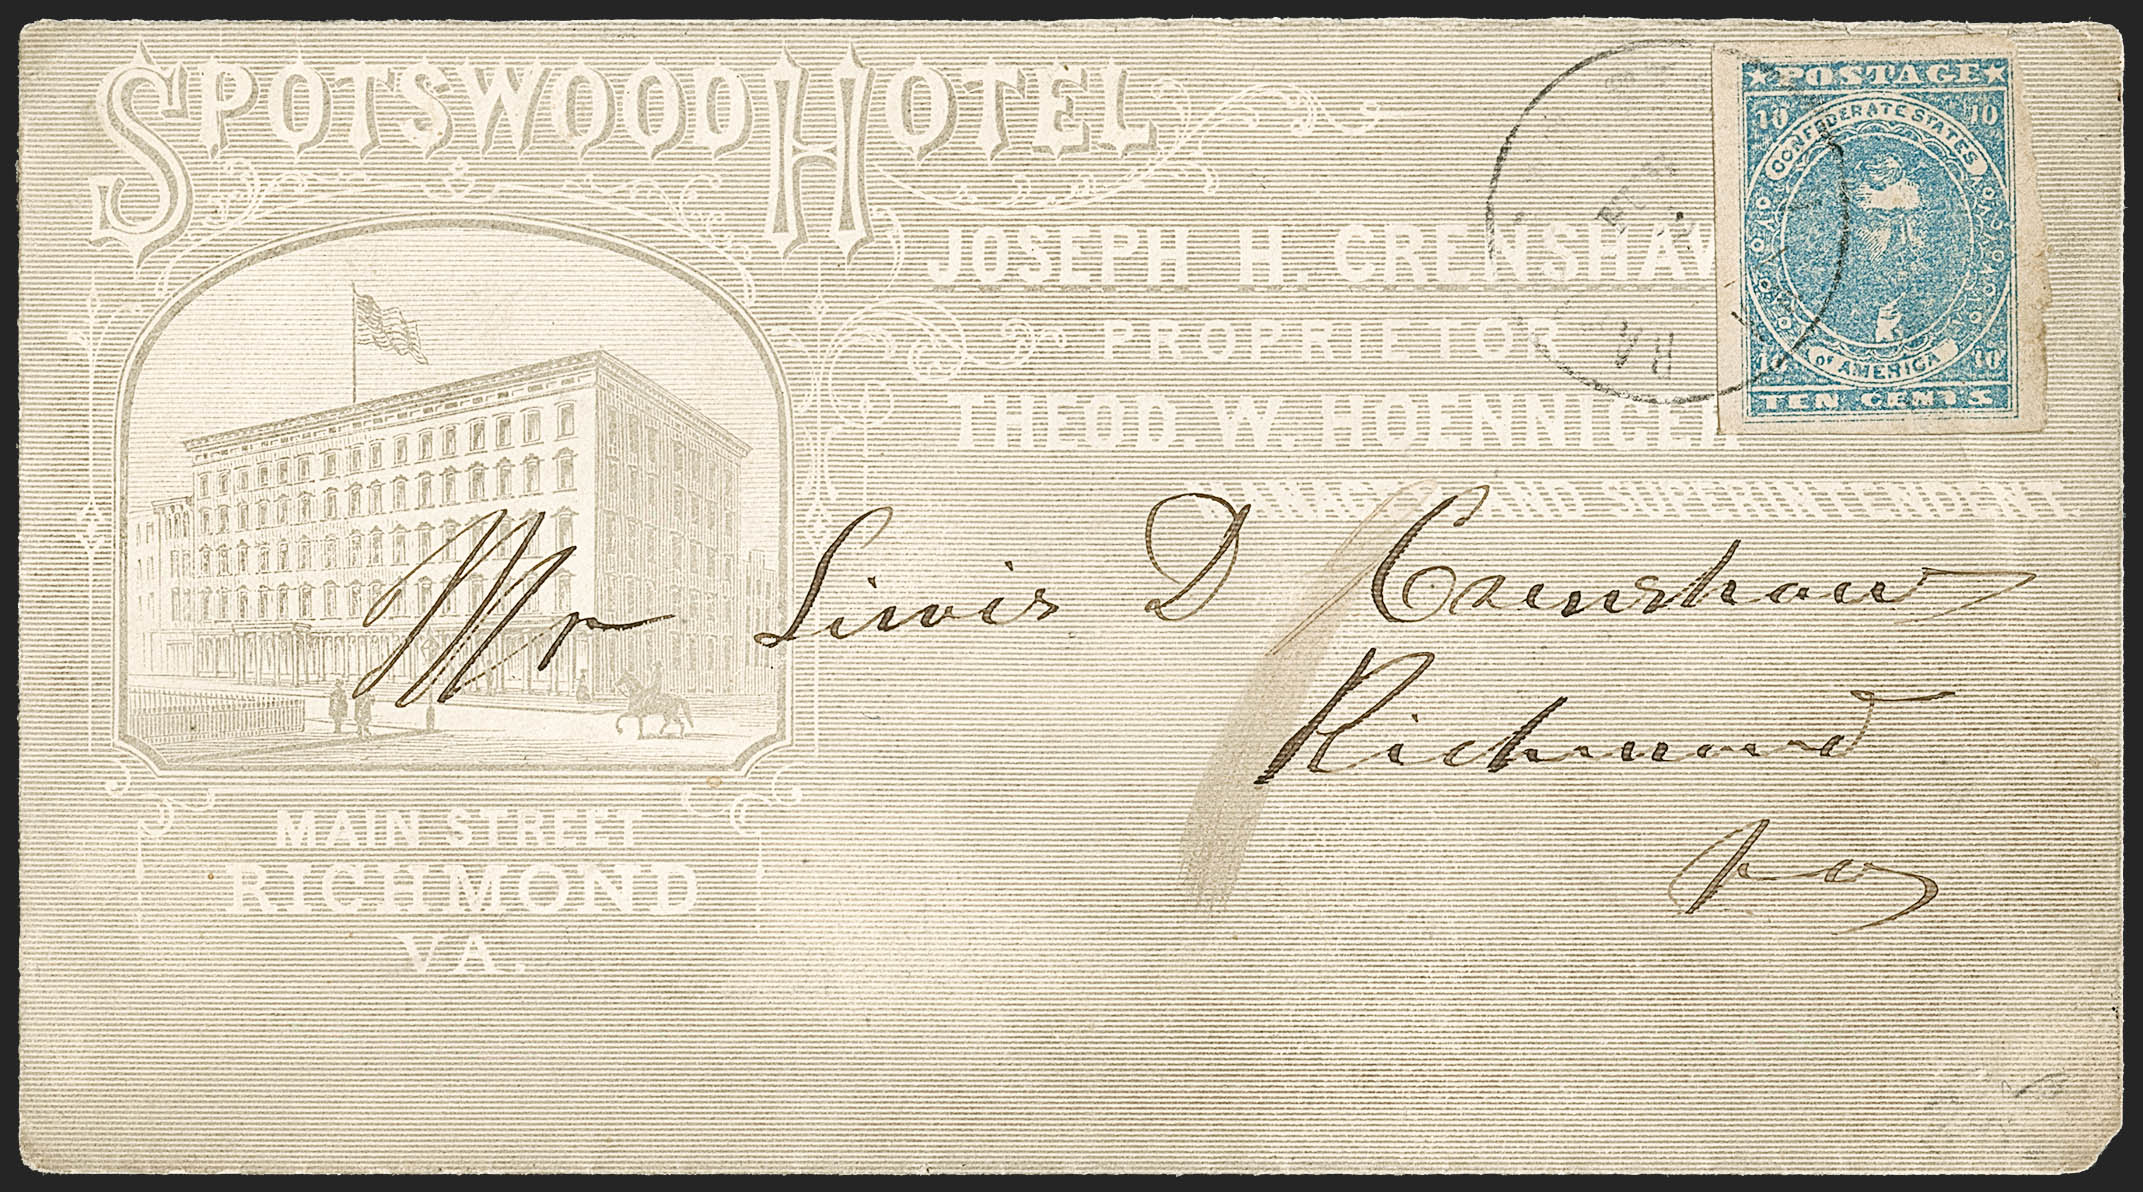 SPOTSWOOD HOTEL
JOSEPH H. CRENSHAW
PROPRIETOR
THEOD. W. HOENNIGER
MANAGER AND SUPERINTENDENT.
MAIN STREET
RICHMOND
VA.
POSTAGE
10 10
CONFEDERATE STATES
OF AMERICA
10 10
TEN CENTS
VA
Mr Liwis D Crenshaw
Richmond
Va